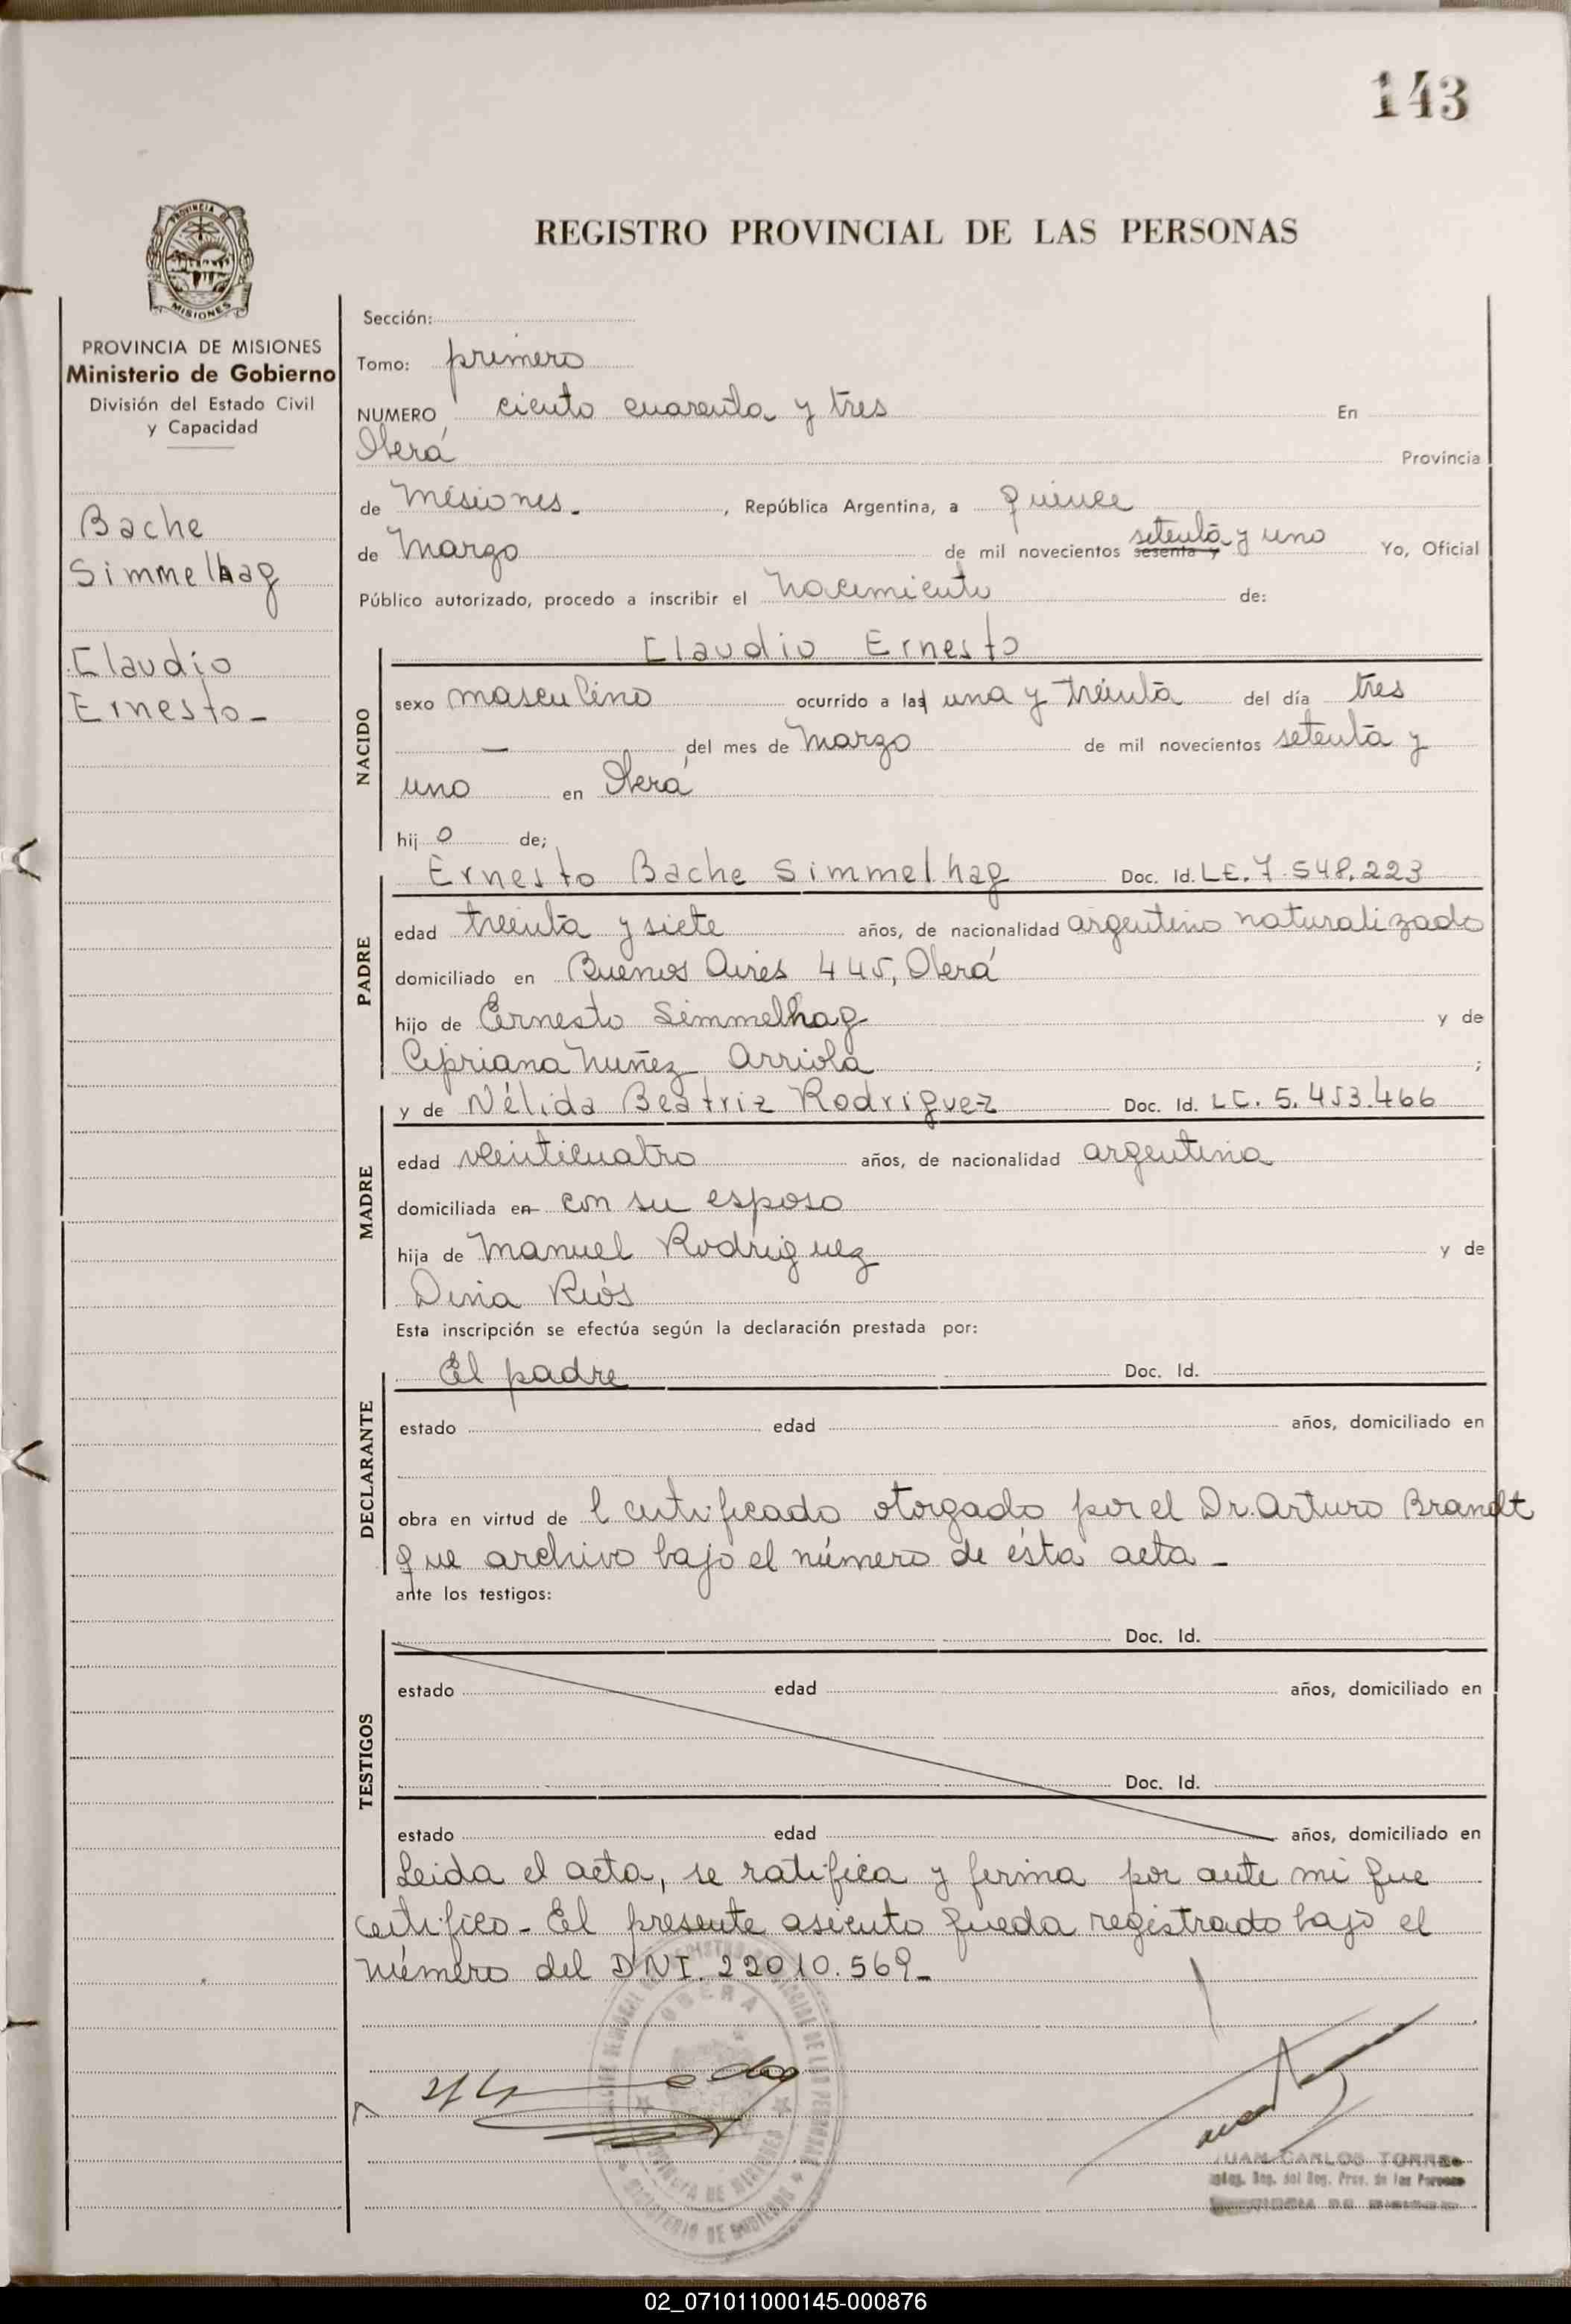 143
PROVINCIA DE
MISIONES
REGISTRO PROVINCIAL DE LAS PERSONAS
PROVINCIA DE MISIONES
Ministerio de Gobierno
División del Estado Civil
y Capacidad
Bache
Simmelhag
Claudio
Ernesto -
Sección:
Tomo: primero
NUMERO ciento cuarenta y tres En
Oberá Provincia
de Misiones. , República Argentina, a quince
de Marzo de mil novecientos sesenta y setenta y uno Yo, Oficial
Público autorizado, procedo a inscribir el nacimiento de:
Claudio Ernesto
NACIDO
sexo masculino ocurrido a las una y treinta del día tres
— del mes de Marzo de mil novecientos setenta y
uno en Oberá
hij o de;
Ernesto Bache Simmelhag Doc. Id. LE. 7.548.223
PADRE
edad treinta y siete años, de nacionalidad argentino naturalizado
domiciliado en Buenos Aires 445, Oberá
hijo de Ernesto Simmelhag y de
Cipriana Nuñez Arriola ;
y de Nélida Beatriz Rodriguez Doc. Id. LC. 5.453.466
MADRE
edad veinticuatro años, de nacionalidad argentina
domiciliada en con su esposo
hija de Manuel Rodriguez y de
Dina Ríos
Esta inscripción se efectúa según la declaración prestada por:
El padre Doc. Id.
DECLARANTE
estado edad años, domiciliado en
obra en virtud de l certificado otorgado por el Dr. Arturo Brandt
que archivo bajo el número de ésta acta -
ante los testigos:
Doc. Id.
TESTIGOS
estado edad años, domiciliado en
Doc. Id.
estado edad años, domiciliado en
Leida el acta, se ratifica y firma por ante mi que
certifico - El presente asiento queda registrado bajo el
número del DNI. 22010.569 -
OBERA
PROVINCIA DE MISIONES
MINISTERIO DE GOBIERNO
JUAN CARLOS TORRES
del Reg. Prov. de las Personas
02_071011000145-000876